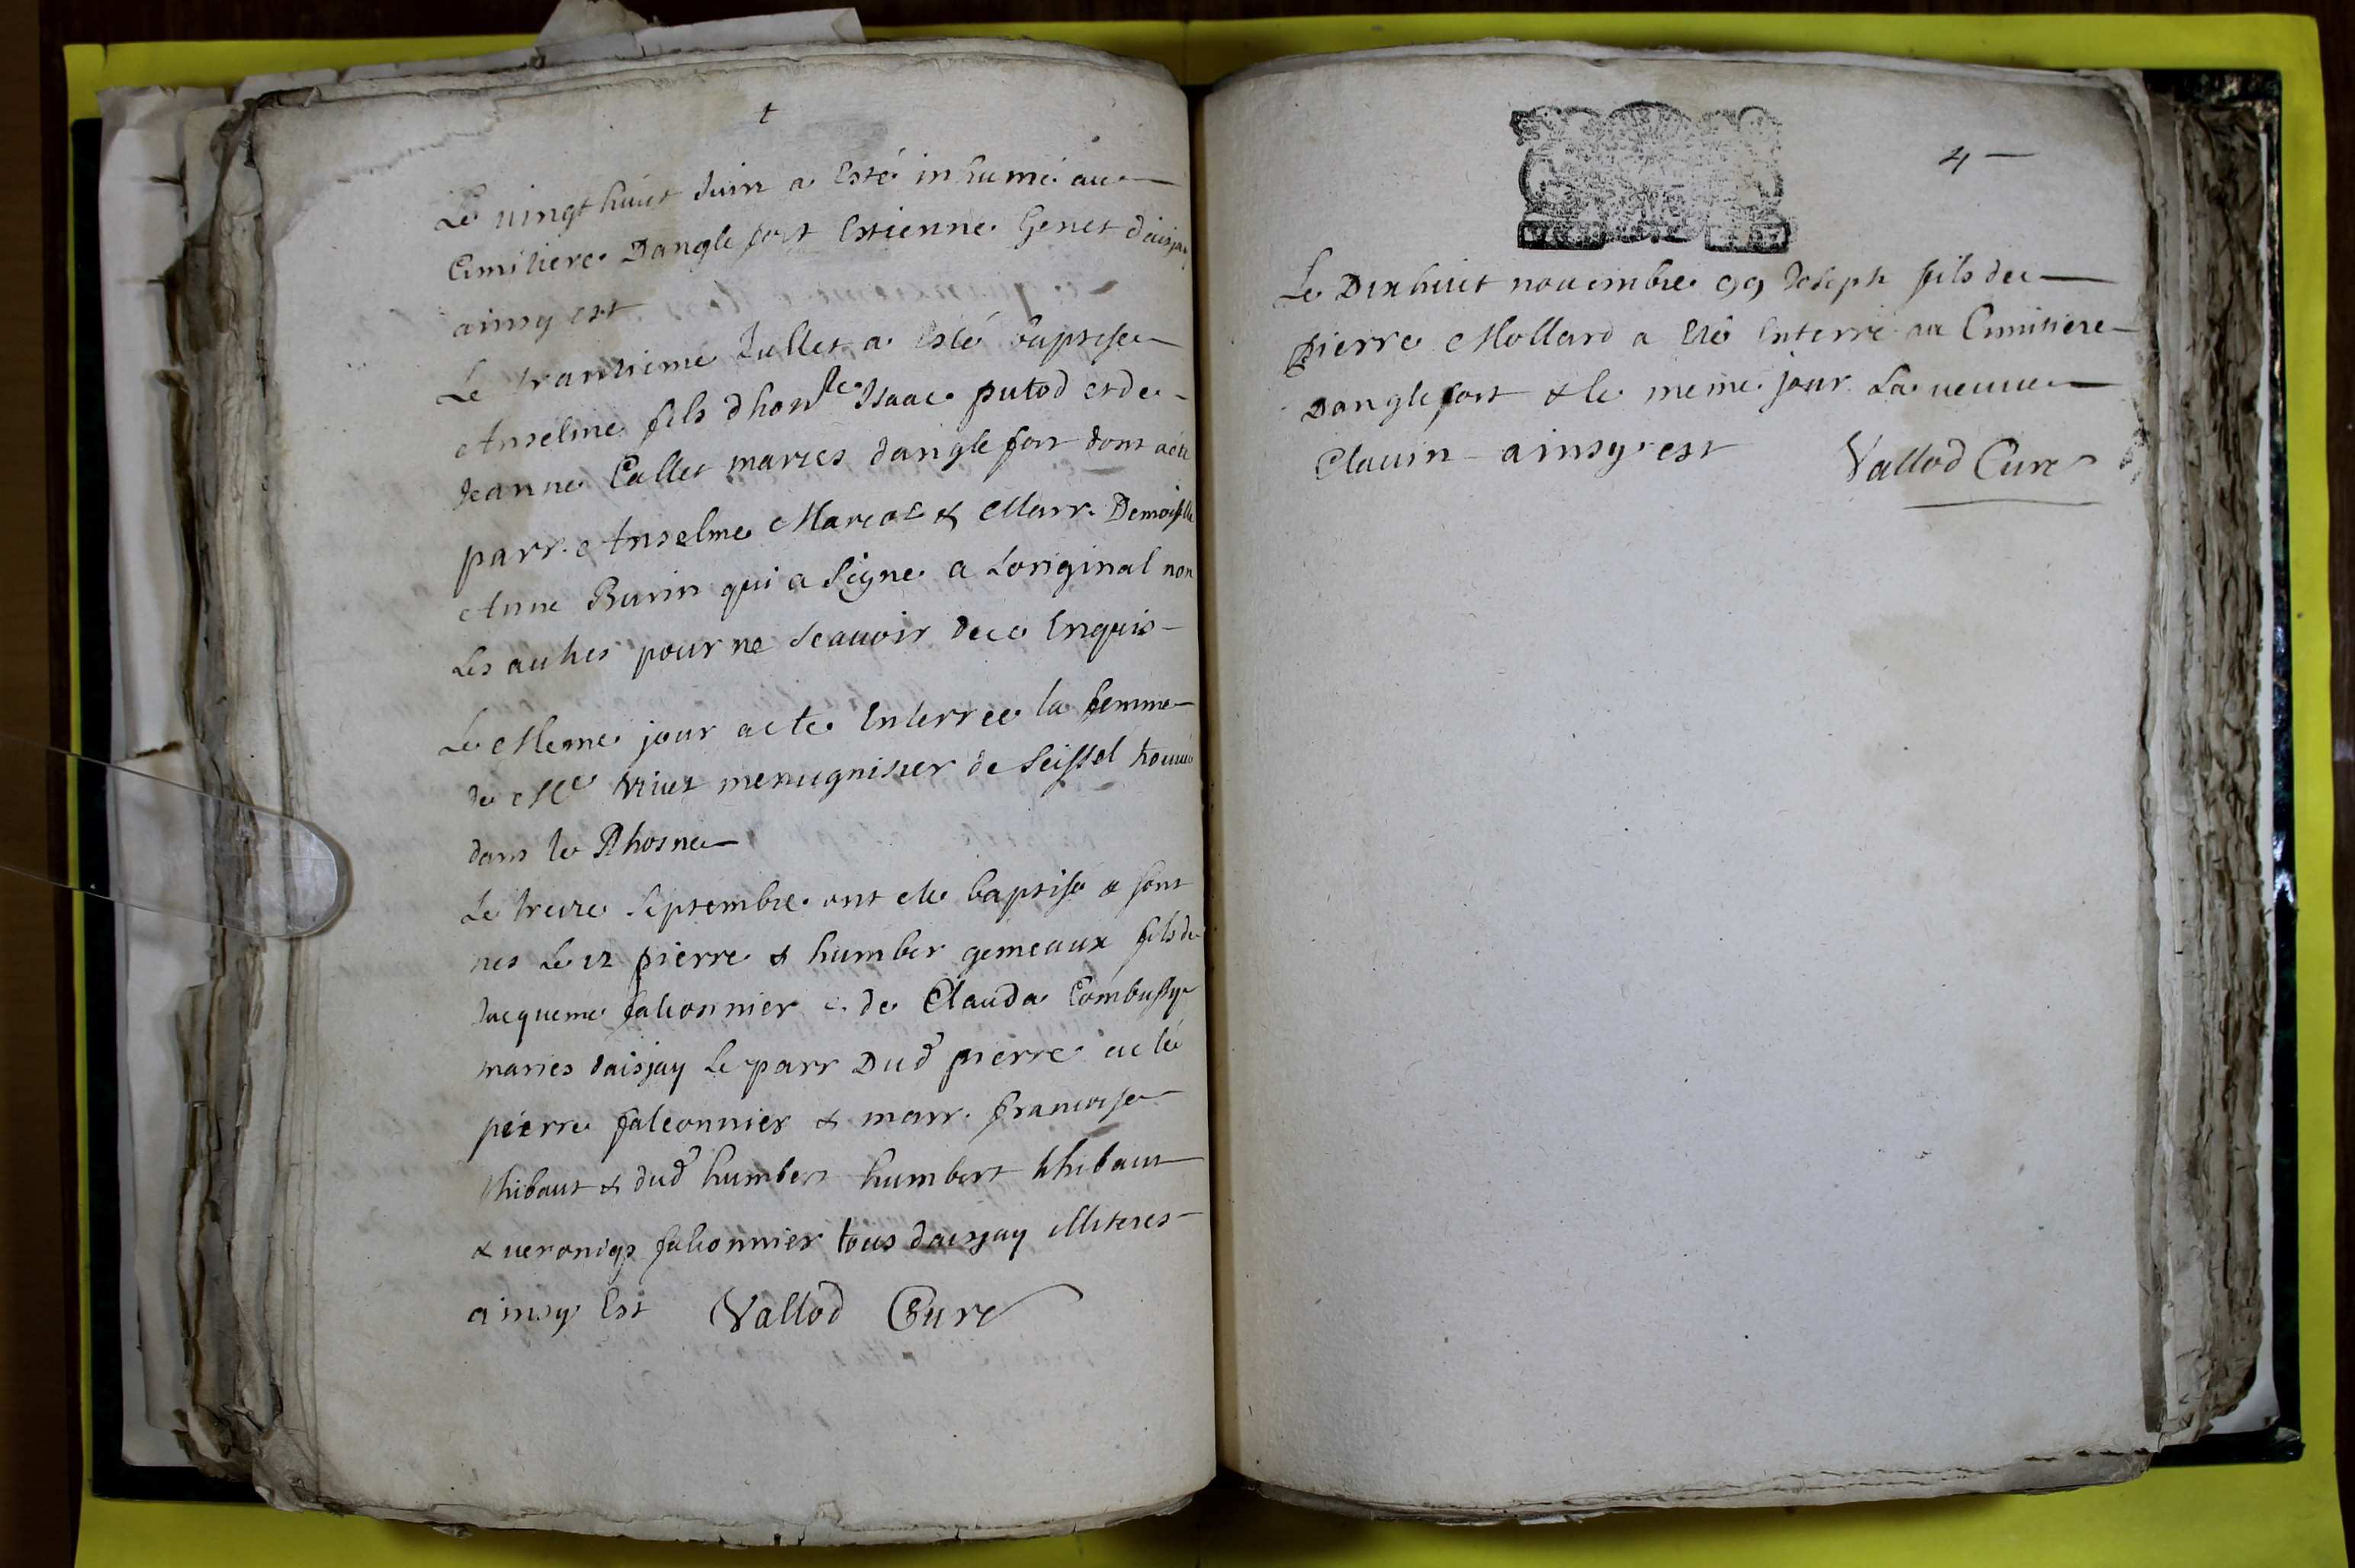 t
Le vingt huict Juin a Esté inhumé au
Cimitiere Danglefort Estienne Genet daisjay
ainsy est
Le trantième Jullet a Esté baptise
Anselme fils d'hon^le Isaac putod et de
Jeanne Callet maries danglefort dont a été
parr. Anselme Marcoz & Marr. Demoiselle
Anne Burin qui a Signe a Loriginal non
Les autres pour ne Scauoir de ce Enquis
Le Meme jour a ete Enterree la femme
de M^e menugnisier de Seissel trouué
dans le Rhosne
Le treize Septembre ont ete baptise & sont
nes Le 12 pierre & humber gemeaux fils de
Jacqueme falconnier & de Clauda Combussy
maries daisjay Le parr Dud pierre a eté
pierre falconnier & marr. francoise
thibaut & dud humbert humbert thibaut
& ueroniq falconnier tous daisjay illiteres
ainsy Est Vallod Curé
4
Le Dixhuict nouembre 99 Joseph fils de
pierre Mollard a Eté Enterré au Cimitiere
Danglefort & le meme jour La ueuue
Clauin ainsy est Vallod Curé